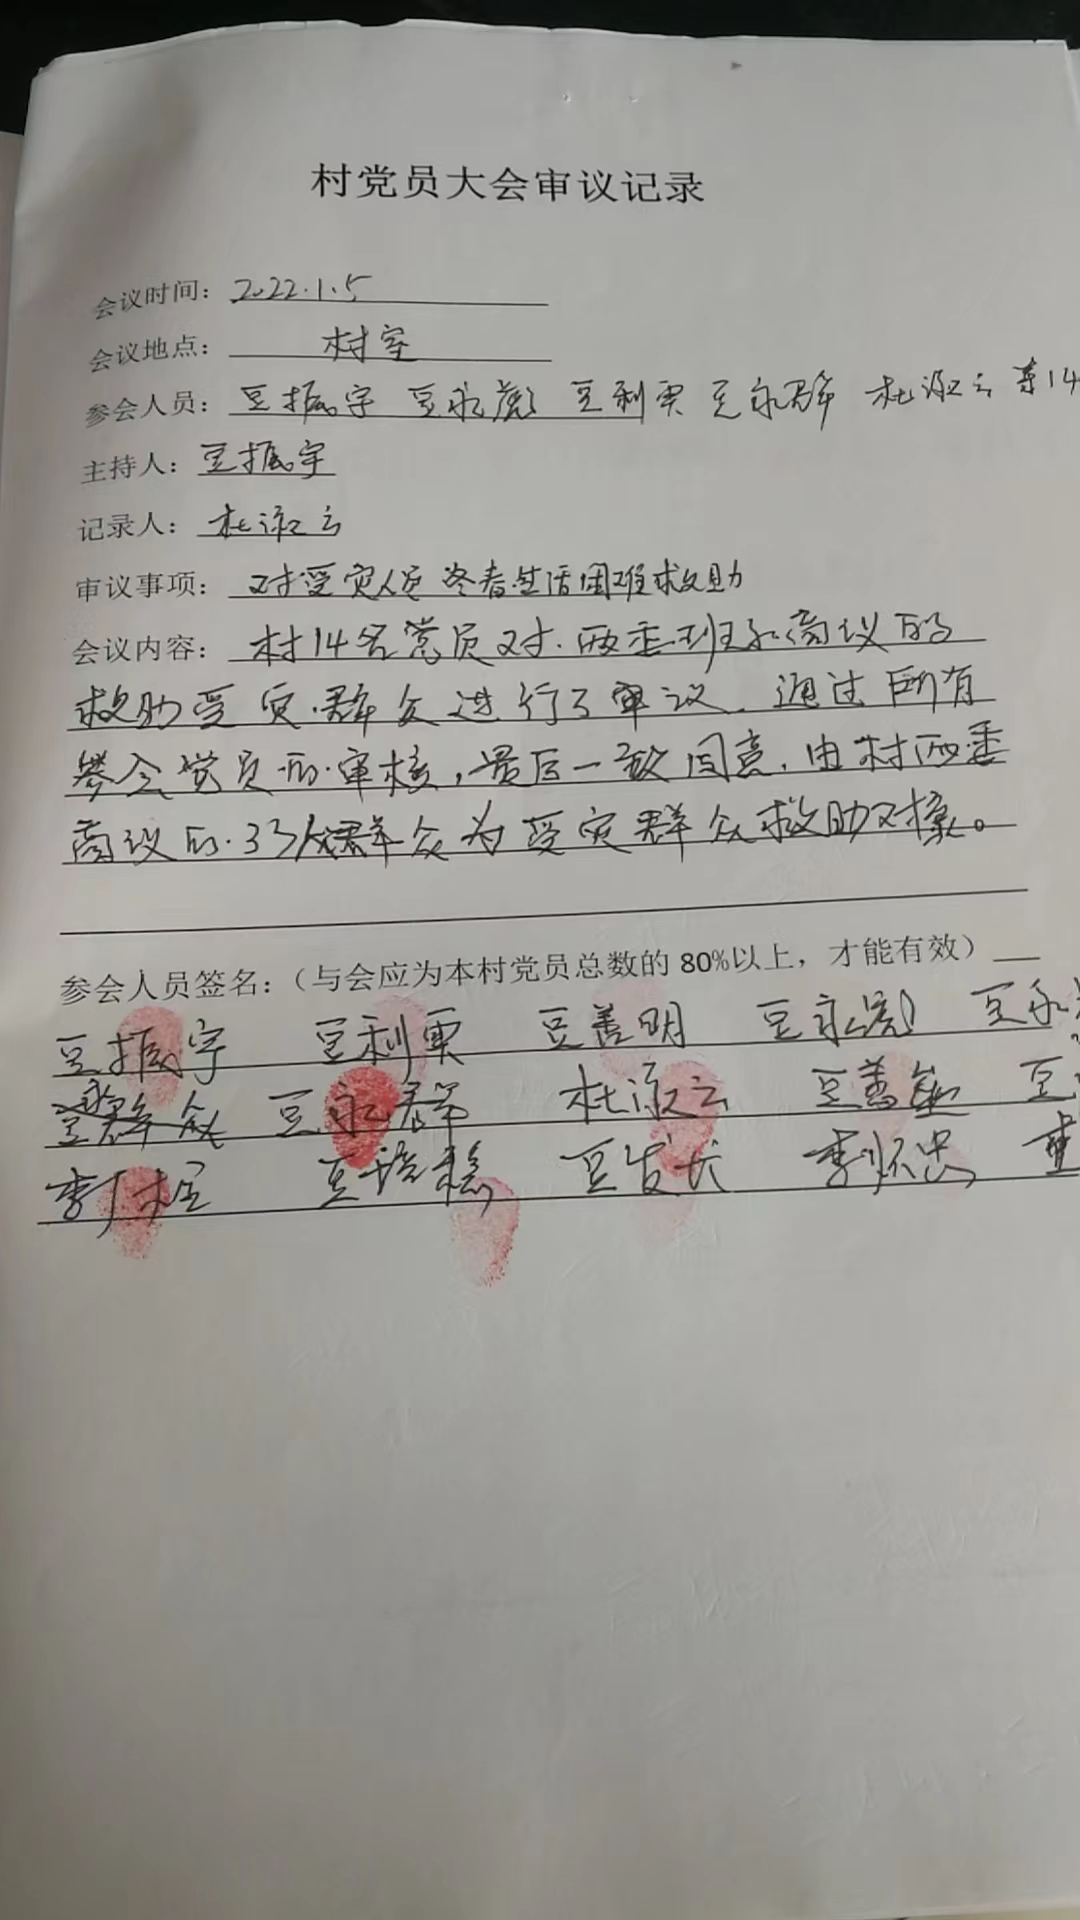 村党员大会审议记录
会议时间：2022.1.5
会议地点：村室
参会人员：豆振宇 豆永彪 豆利霞 豆永群 杜淑云 等14
主持人：豆振宇
记录人：杜淑云
审议事项：对受灾人员冬春生活困难救助
会议内容：村14名党员对.两委班子商议的
救助受灾.群众进行了审议。通过所有
参会党员的.审核，最后一致同意，由村两委
商议的.33人群众为受灾群众救助对象。
参会人员签名：（与会应为本村党员总数的80%以上，才能有效）
豆振宇 豆利霞 豆善明 豆永彪 豆永
豆永群 杜淑云 豆善 豆
李 豆 豆发长 李怀忠